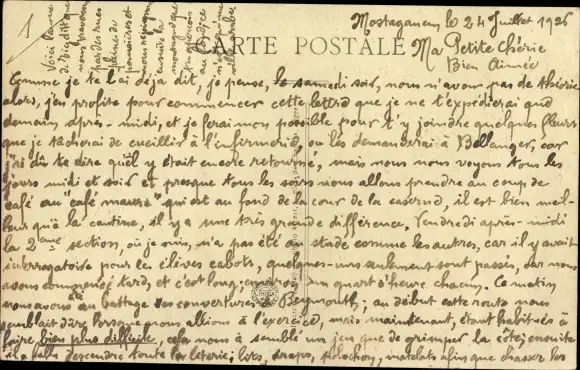 1
Voici la rue
de Vignt que
nous prenons
par des rues
pleines de
poussières et
nous rejoignons
ensuite la
CARTE POSTALE
Mostaganem le 24 Juillet 1926
Ma Petite Chérie
Bien Aimée
Comme je te l'ai déjà dit, je pense, le samedi soir, nous n'avons pas de théorie
alors, j'en profite pour commencer cette lettre que je ne t'expédierai que
demain après-midi, et je ferai mon possible pour t'y joindre quelques fleurs
que je tâcherai de cueillir à l'infirmerie, ou les demanderai à Bellanger, car
j'ai dû te dire qu'il y était encore retourné, mais nous nous voyons tous les
jours midi et soir et presque tous les soirs nous allons prendre un coup de
café au "café maure" qui est au fond de la cour de la caserne, il est bien meil-
leur qu'à la cantine, il y a une très grande différence, Vendredi après-midi
la 2ème section, où je suis, n'a pas été au stade comme les autres, car il y avait
interrogatoire pour les élèves cabots, quelques-uns seulement sont passés, car nous
avons commencé tard, et c'est long; environ un quart d'heure chacun. Ce matin,
nous avons au battage des couvertures à Beymouth; au début cette route nous
semblait dure lorsque nous allions à l'exercice, mais maintenant, étant habitués à
faire bien plus difficile, cela nous à semblé un jeu que de grimper la côte; ensuite
il a fallu descendre toute la literie; lits, draps, polochon, matelats afin que chasser les